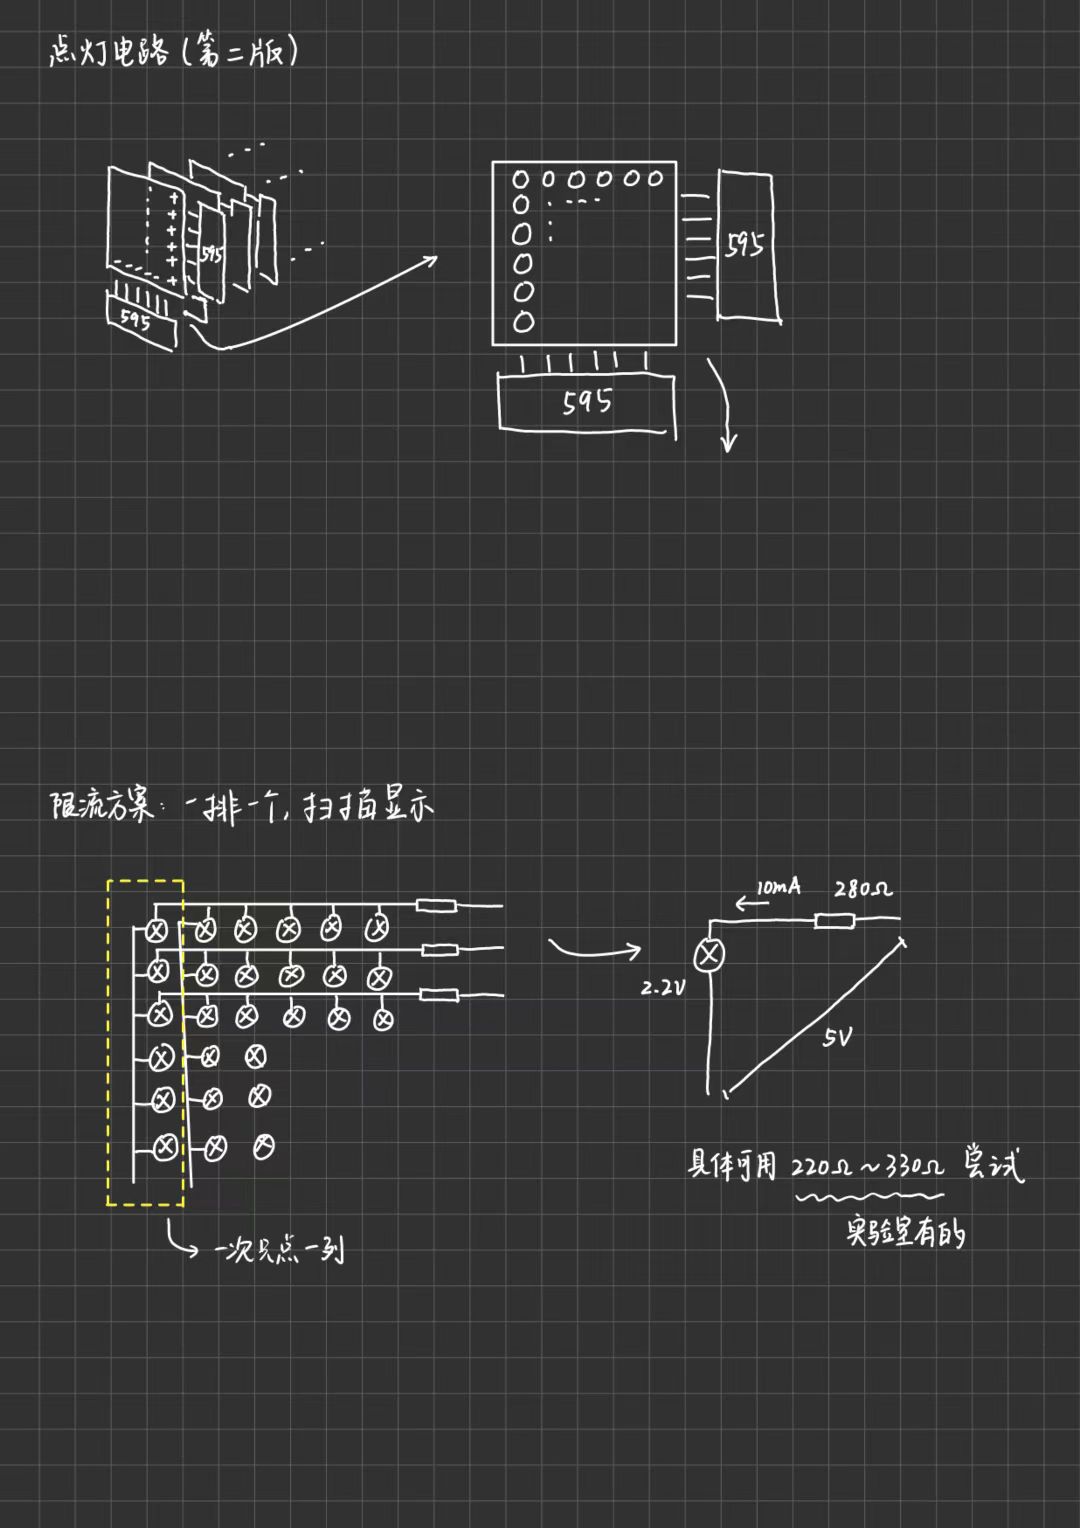 点灯电路(第二版)
595
595
595
595
限流方案: 一排一个, 扫描显示
10mA 280Ω
2.2V
5V
具体可用 220Ω~330Ω 尝试
实验室有的
一次只点一列